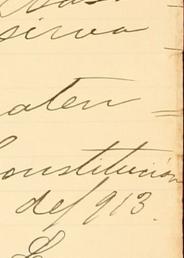 sirva
aten=
onstitución
de 1913.